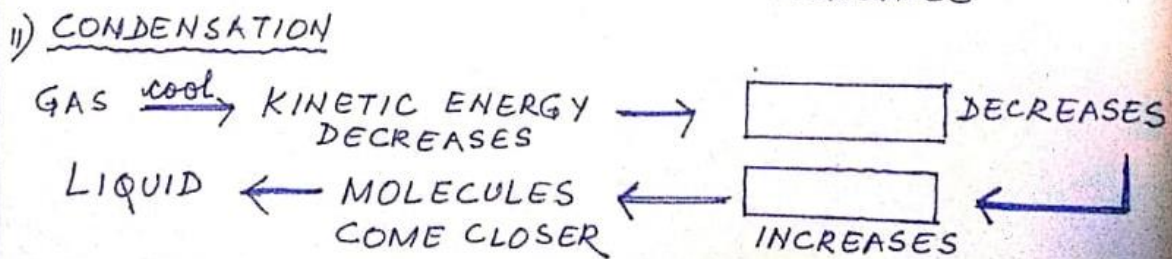 11) CONDENSATION
GAS cool → KINETIC ENERGY → DECREASES
DECREASES
LIQUID ← MOLECULES ←
COME CLOSER INCREASES